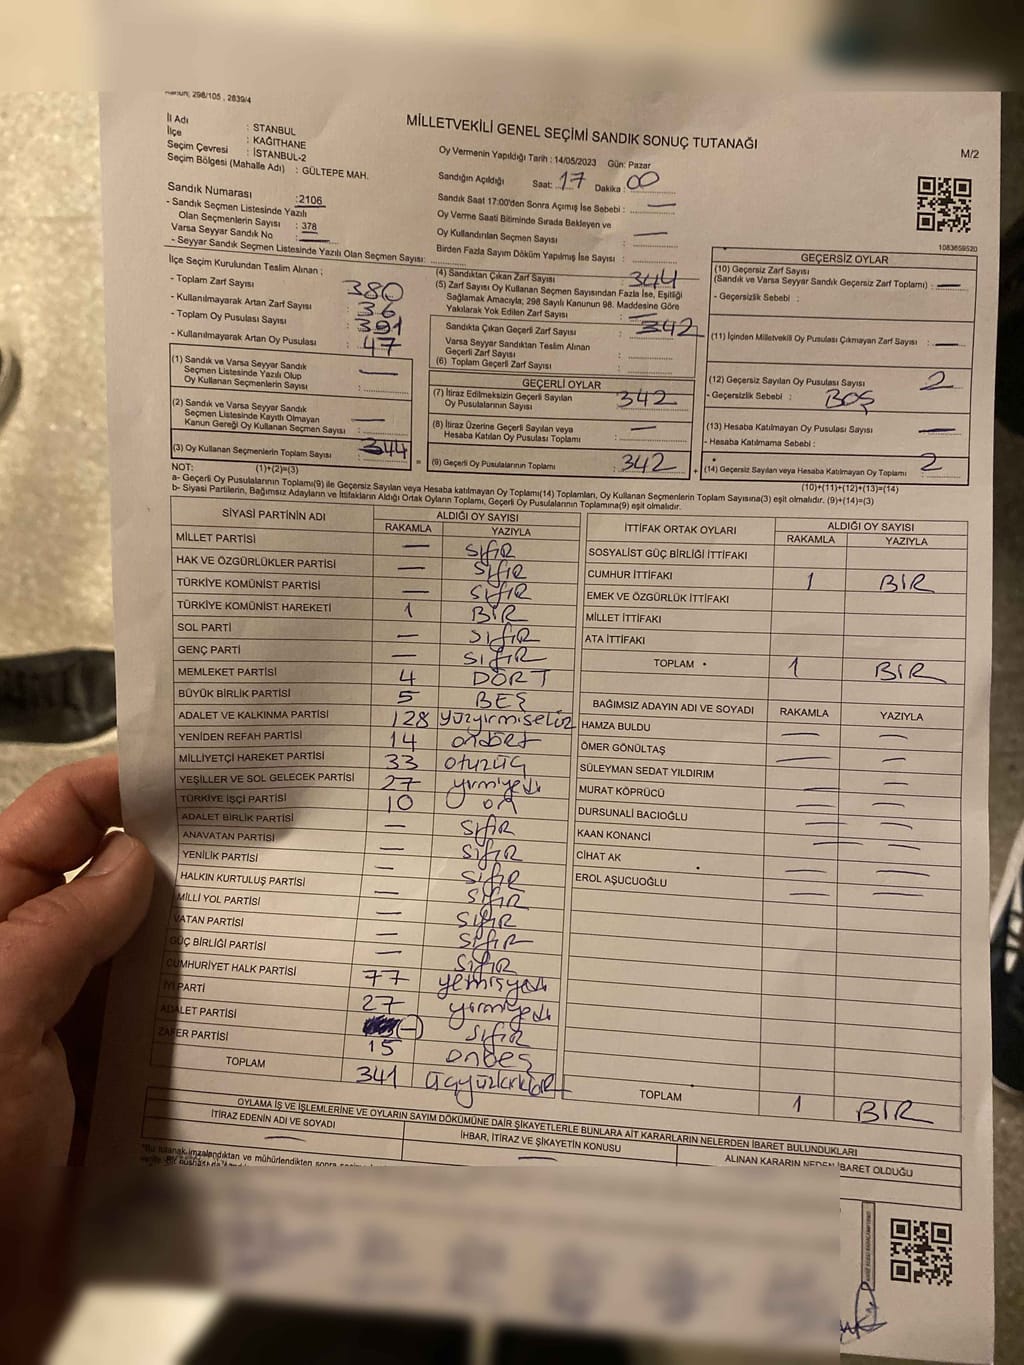 Kanun; 298/105 , 2839/4
MİLLETVEKİLİ GENEL SEÇİMİ SANDIK SONUÇ TUTANAĞI
M/2
İl Adı : STANBUL
İlçe : KAĞITHANE
Seçim Çevresi : İSTANBUL-2
Seçim Bölgesi (Mahalle Adı) : GÜLTEPE MAH.
Sandık Numarası :2106
- Sandık Seçmen Listesinde Yazılı
Olan Seçmenlerin Sayısı : 378
Varsa Seyyar Sandık No :
- Seyyar Sandık Seçmen Listesinde Yazılı Olan Seçmen Sayısı:
Oy Vermenin Yapıldığı Tarih : 14/05/2023 Gün: Pazar
Sandığın Açıldığı Saat: 17 Dakika : 00
Sandık Saat 17:00'den Sonra Açımış İse Sebebi : —
Oy Verme Saati Bitiminde Sırada Bekleyen ve
Oy Kullandırılan Seçmen Sayısı : —
Birden Fazla Sayım Döküm Yapılmış İse Sayısı :
1083659520
İlçe Seçim Kurulundan Teslim Alınan ;
- Toplam Zarf Sayısı : 380
- Kullanılmayarak Artan Zarf Sayısı : 36
- Toplam Oy Pusulası Sayısı : 391
- Kullanılmayarak Artan Oy Pusulası : 47
(1) Sandık ve Varsa Seyyar Sandık
Seçmen Listesinde Yazılı Olup
Oy Kullanan Seçmenlerin Sayısı : —
(2) Sandık ve Varsa Seyyar Sandık
Seçmen Listesinde Kayıtlı Olmayan
Kanun Gereği Oy Kullanan Seçmen Sayısı : —
(3) Oy Kullanan Seçmenlerin Toplam Sayısı : 344
(4) Sandıktan Çıkan Zarf Sayısı : 344
(5) Zarf Sayısı Oy Kullanan Seçmen Sayısından Fazla İse, Eşitliği
Sağlamak Amacıyla; 298 Sayılı Kanunun 98. Maddesine Göre
Yakılarak Yok Edilen Zarf Sayısı : —
Sandıkta Çıkan Geçerli Zarf Sayısı : 342
Varsa Seyyar Sandıktan Teslim Alınan
Geçerli Zarf Sayısı :
(6) Toplam Geçerli Zarf Sayısı :
GEÇERLİ OYLAR
(7) İtiraz Edilmeksizin Geçerli Sayılan
Oy Pusulalarının Sayısı : 342
(8) İtiraz Üzerine Geçerli Sayılan veya
Hesaba Katılan Oy Pusulası Toplamı : —
(9) Geçerli Oy Pusulalarının Toplamı : 342
GEÇERSİZ OYLAR
(10) Geçersiz Zarf Sayısı
(Sandık ve Varsa Seyyar Sandık Geçersiz Zarf Toplamı) : —
- Geçersizlik Sebebi :
(11) İçinden Milletvekili Oy Pusulası Çıkmayan Zarf Sayısı : —
(12) Geçersiz Sayılan Oy Pusulası Sayısı : 2
- Geçersizlik Sebebi : BOŞ
(13) Hesaba Katılmayan Oy Pusulası Sayısı : —
- Hesaba Katılmama Sebebi :
(14) Geçersiz Sayılan veya Hesaba Katılmayan Oy Toplamı : 2
NOT: (1)+(2)=(3)
(10)+(11)+(12)+(13)=(14)
a- Geçerli Oy Pusulalarının Toplamı(9) ile Geçersiz Sayılan veya Hesaba katılmayan Oy Toplamı(14) Toplamları, Oy Kullanan Seçmenlerin Toplam Sayısına(3) eşit olmalıdır. (9)+(14)=(3)
b- Siyasi Partilerin, Bağımsız Adayların ve İttifakların Aldığı Ortak Oyların Toplamı, Geçerli Oy Pusulalarının Toplamına(9) eşit olmalıdır.
SİYASİ PARTİNİN ADI ALDIĞI OY SAYISI
RAKAMLA YAZIYLA
MİLLET PARTİSİ — SIFIR
HAK VE ÖZGÜRLÜKLER PARTİSİ — SIFIR
TÜRKİYE KOMÜNİST PARTİSİ — SIFIR
TÜRKİYE KOMÜNİST HAREKETİ 1 BİR
SOL PARTİ — SIFIR
GENÇ PARTİ — SIFIR
MEMLEKET PARTİSİ 4 DÖRT
BÜYÜK BİRLİK PARTİSİ 5 BEŞ
ADALET VE KALKINMA PARTİSİ 128 yüzyirmisekiz
YENİDEN REFAH PARTİSİ 14 ondört
MİLLİYETÇİ HAREKET PARTİSİ 33 otuzüç
YEŞİLLER VE SOL GELECEK PARTİSİ 27 yirmiyedi
TÜRKİYE İŞÇİ PARTİSİ 10 on
ADALET BİRLİK PARTİSİ — SIFIR
ANAVATAN PARTİSİ — SIFIR
YENİLİK PARTİSİ — SIFIR
HALKIN KURTULUŞ PARTİSİ — SIFIR
MİLLİ YOL PARTİSİ — SIFIR
VATAN PARTİSİ — SIFIR
GÜÇ BİRLİĞİ PARTİSİ — SIFIR
CUMHURİYET HALK PARTİSİ 77 yetmişyedi
İYİ PARTİ 27 yirmiyedi
ADALET PARTİSİ (—) SIFIR
ZAFER PARTİSİ 15 onbeş
TOPLAM 341 üçyüzkırkbir
İTTİFAK ORTAK OYLARI ALDIĞI OY SAYISI
RAKAMLA YAZIYLA
SOSYALİST GÜÇ BİRLİĞİ İTTİFAKI
CUMHUR İTTİFAKI 1 BİR
EMEK VE ÖZGÜRLÜK İTTİFAKI
MİLLET İTTİFAKI
ATA İTTİFAKI
TOPLAM 1 BİR
BAĞIMSIZ ADAYIN ADI VE SOYADI RAKAMLA YAZIYLA
HAMZA BULDU — —
ÖMER GÖNÜLTAŞ — —
SÜLEYMAN SEDAT YILDIRIM — —
MURAT KÖPRÜCÜ — —
DURSUNALİ BACIOĞLU — —
KAAN KONANCİ — —
CİHAT AK — —
EROL AŞUCUOĞLU — —
TOPLAM 1 BİR
OYLAMA İŞ VE İŞLEMLERİNE VE OYLARIN SAYIM DÖKÜMÜNE DAİR ŞİKAYETLERLE BUNLARA AİT KARARLARIN NELERDEN İBARET BULUNDUKLARI
İTİRAZ EDENİN ADI VE SOYADI İHBAR, İTİRAZ VE ŞİKAYETİN KONUSU ALINAN KARARIN NEDEN İBARET OLDUĞU
— —
*Bu tutanak imzalandıktan ve mühürlendikten sonra